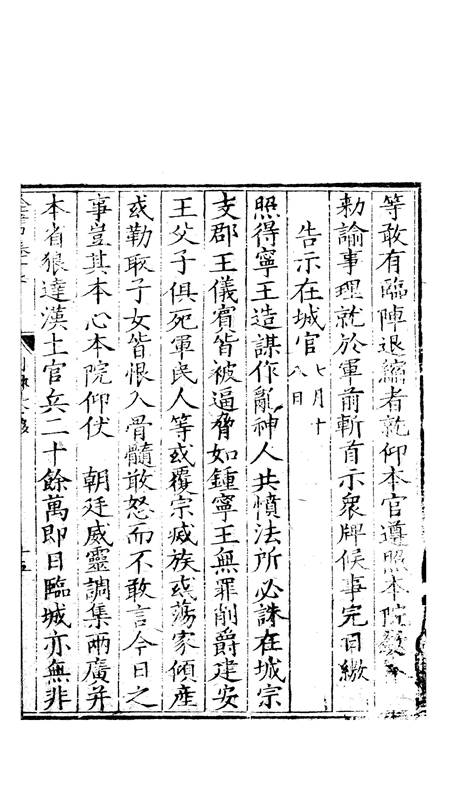 等敢有臨陣退縮者就仰本官遵照本院欽奉
勑諭事理就於軍前斬首示衆牌候事完日繳
告示在城官七月十八日
照得寧王造謀作亂神人共憤法所必誅在城宗
支郡王儀賓皆被逼脅如鍾寧王無罪削爵建安
王父子俱死軍民人等或覆宗滅族或蕩家傾産
或勒取子女皆恨入骨髓敢怒而不敢言今日之
事豈其本心本院仰仗　朝廷威靈調集兩廣并
本省狼達漢土官兵二十餘萬即日臨城亦無非